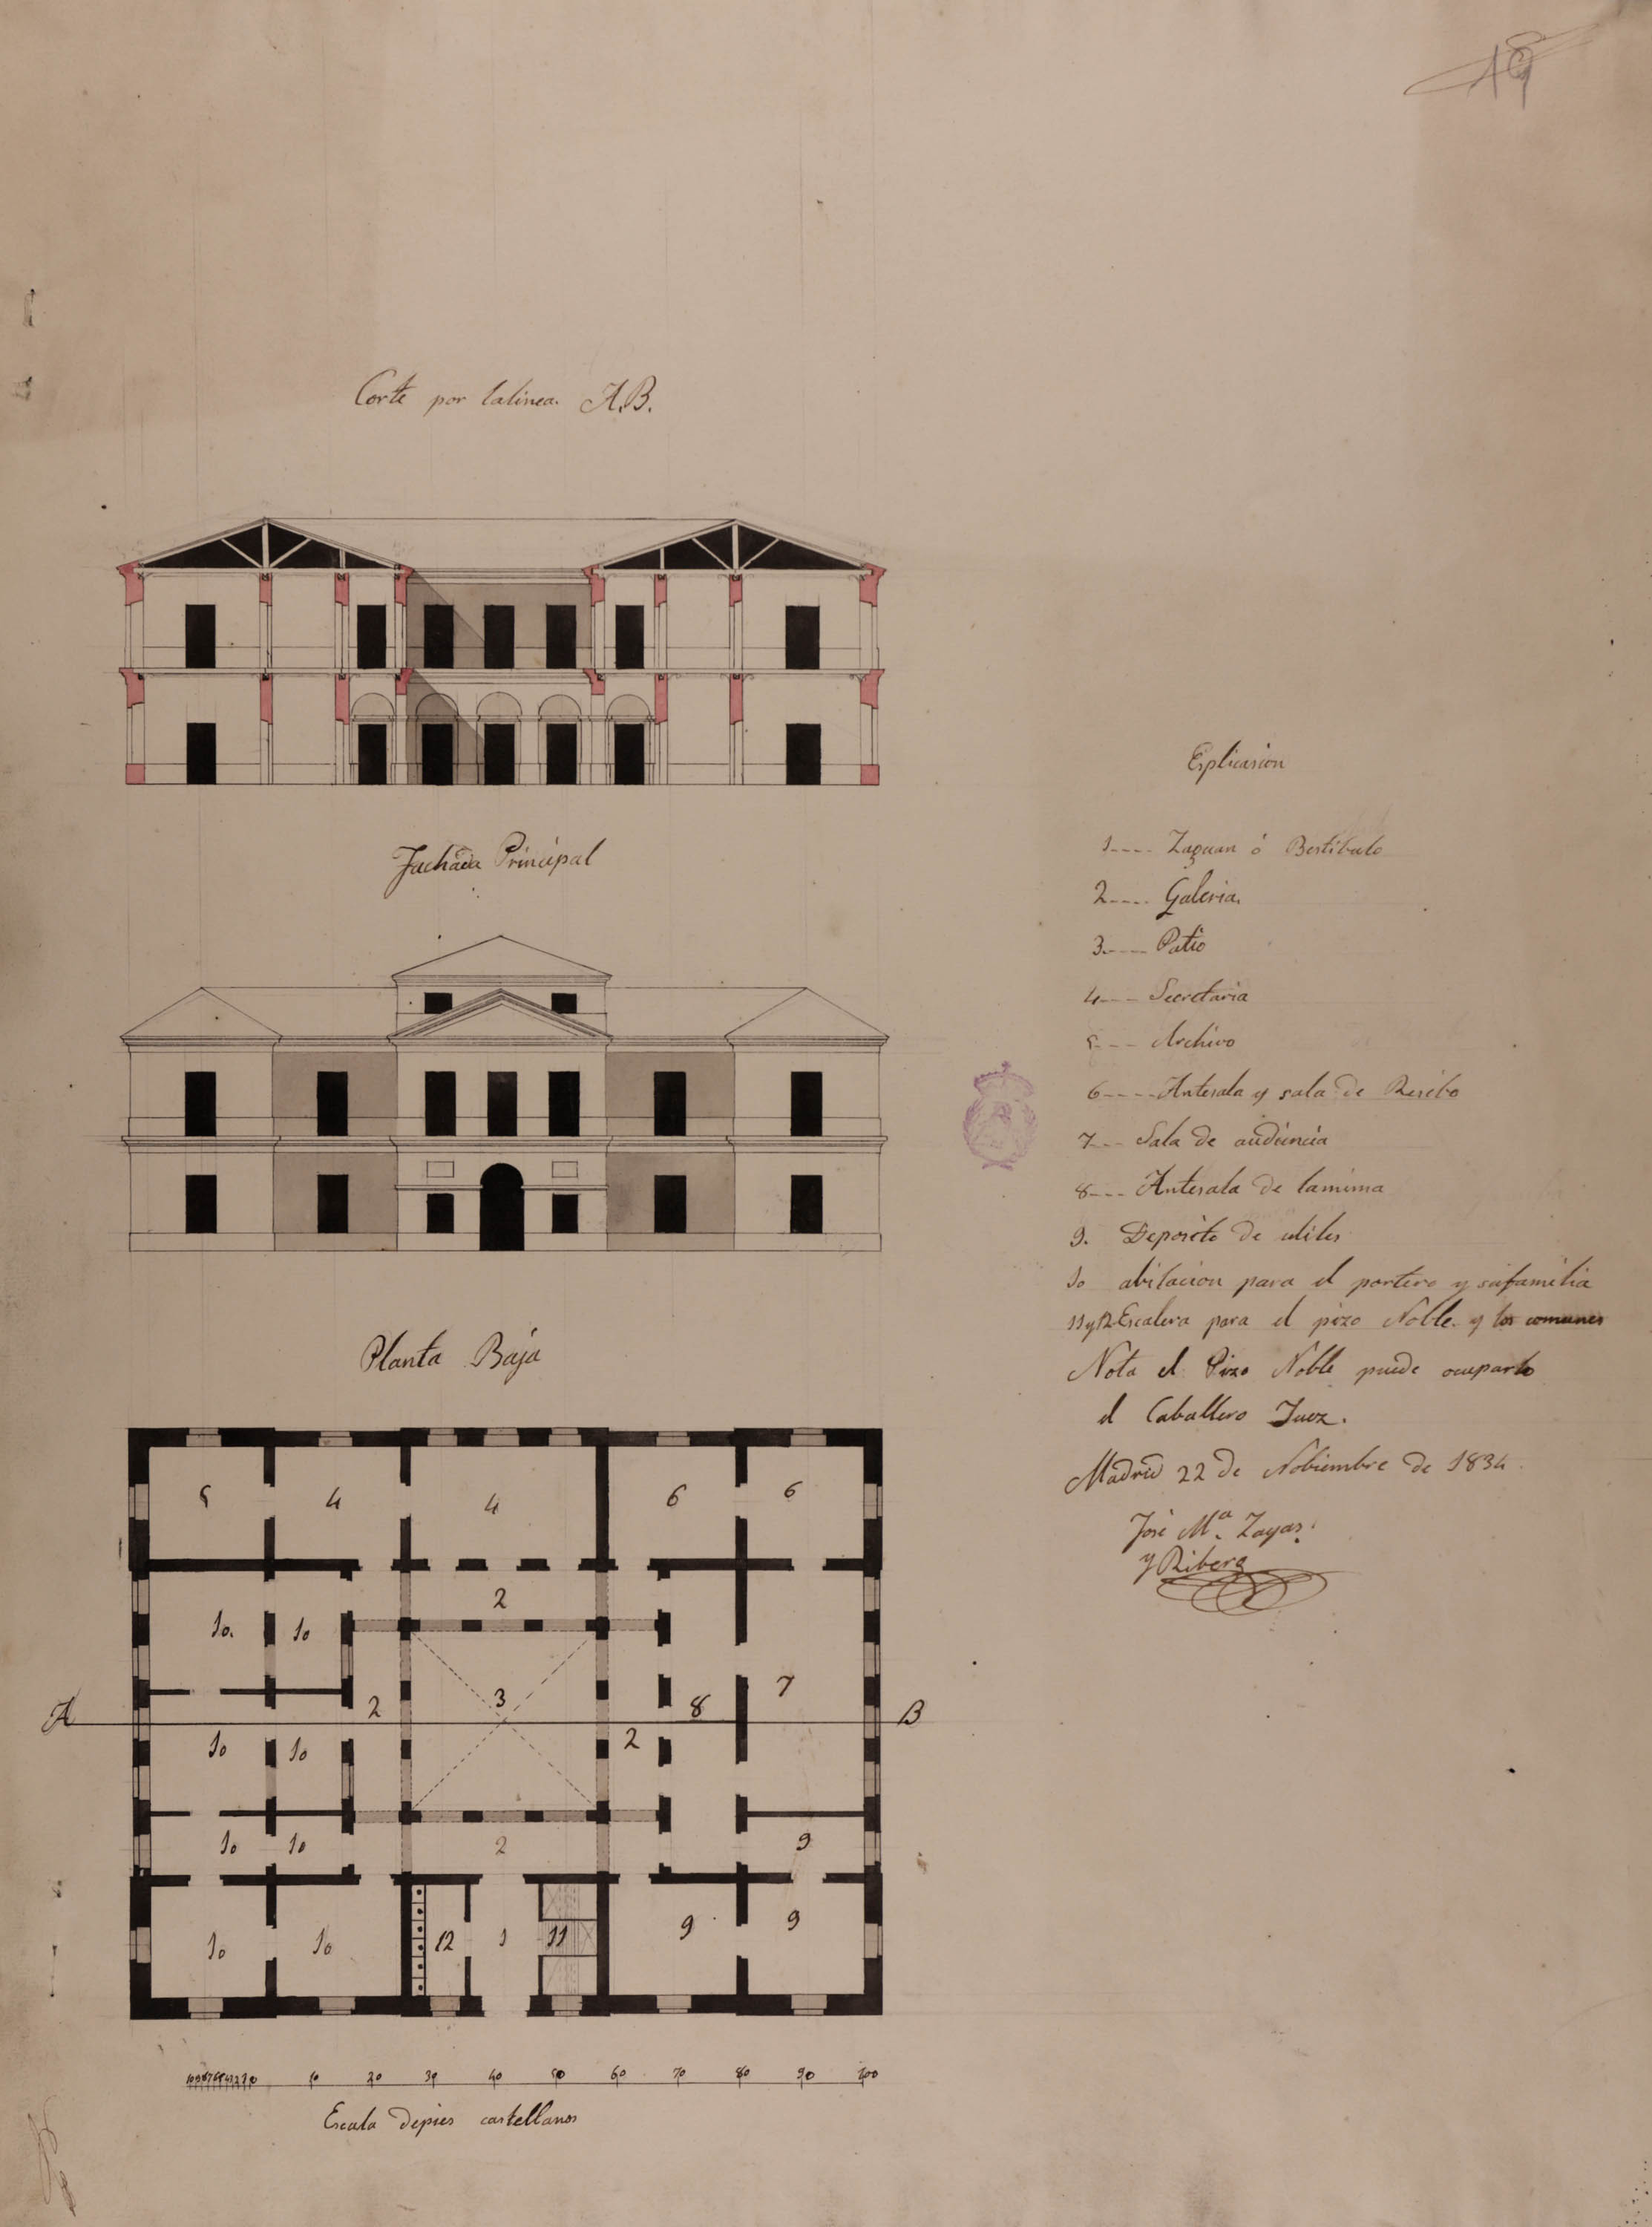 19
Corte por la linea. A.B.
Fachada Principal
Planta Baja
5 4 4 6 6
2
10. 10
3 7
A 2 8 B
2
10 10
10 10 2 9
9 9
10 10 12 1 11
10 9 8 7 6 5 4 3 2 1 0 10 20 30 40 50 60 70 80 90 100
Escala de pies castellanos
Esplicasion
1---- Zaguan ó Bestibulo
2---- Galeria.
3---- Patio
4---- Secretaria
5---- Archivo
6---- Antesala y sala de Resibo
7--- Sala de audiencia
8---- Antesala de lamima
9. Deposito de utiles
10 abitacion para el portero y sufamilia
11 y 12. Escalera para el pizo Noble. y los comunes
Nota el Pizo Noble puede ocuparlo
el Caballero Juez.
Madrid 22 de Nobiembre de 1834.
José Mª Zayas.
y Ribera